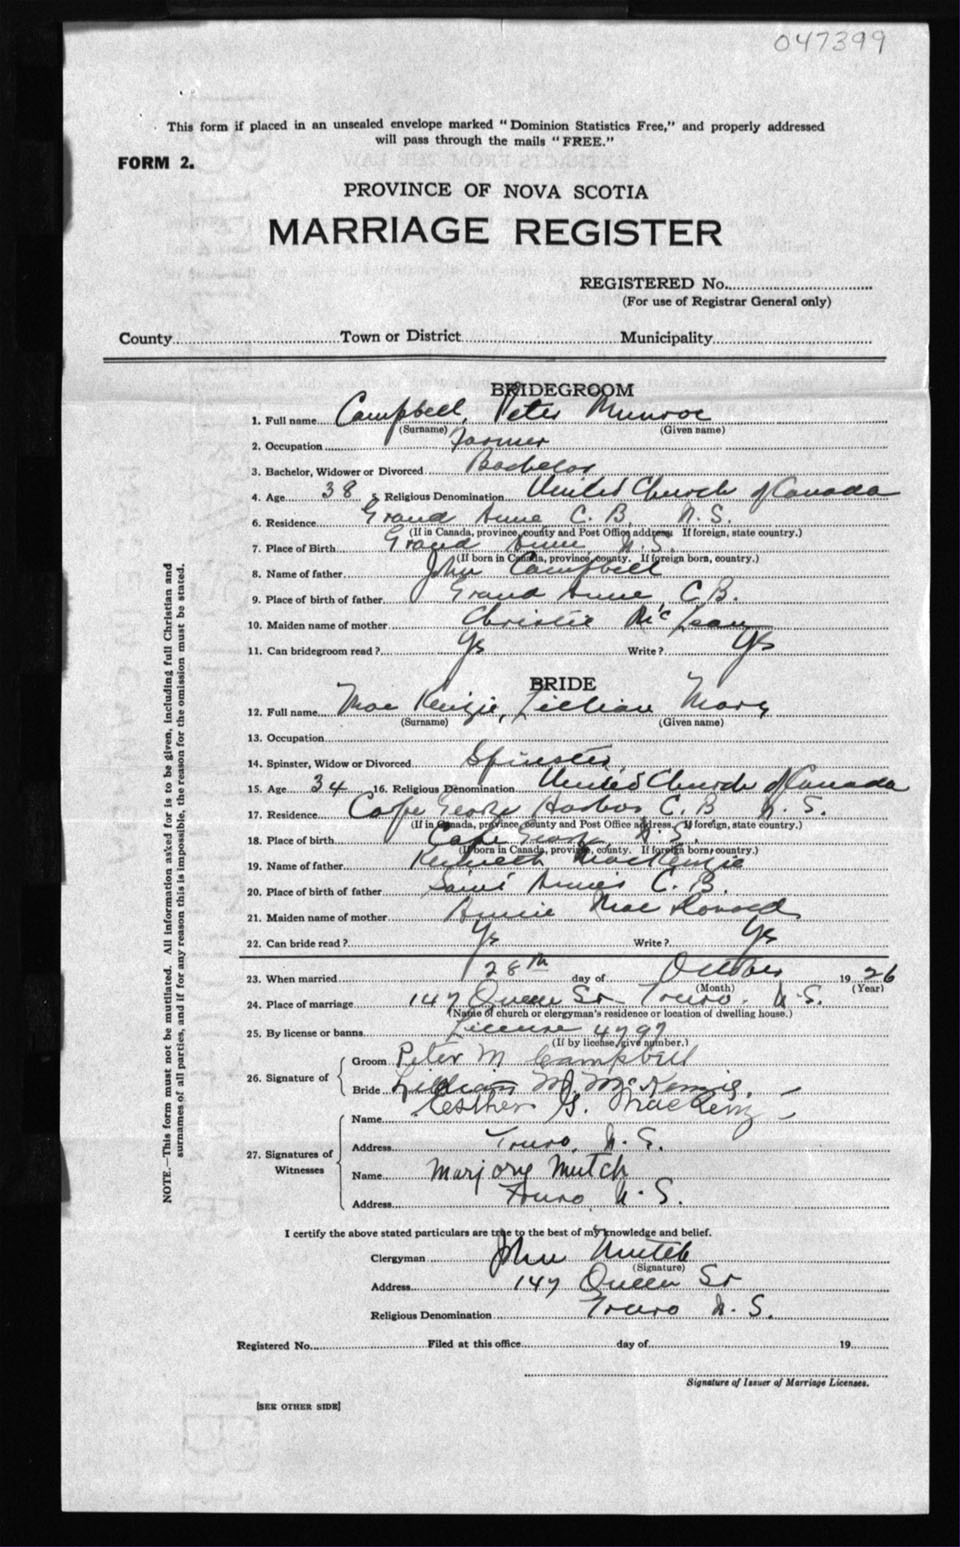 047399
This form if placed in an unsealed envelope marked "Dominion Statistics Free," and properly addressed
will pass through the mails "FREE."
FORM 2.
PROVINCE OF NOVA SCOTIA
MARRIAGE REGISTER
REGISTERED No.
(For use of Registrar General only)
County Town or District Municipality
BRIDEGROOM
1. Full name Campbell, Peter Munroe
(Surname) (Given name)
2. Occupation Farmer
3. Bachelor, Widower or Divorced Bachelor
4. Age 38 5. Religious Denomination United Church of Canada
6. Residence Grand Anne C. B. N. S.
(If in Canada, province, county and Post Office address. If foreign, state country.)
7. Place of Birth Grand Anne N. S.
(If born in Canada, province, county. If foreign born, country.)
8. Name of father John Campbell
9. Place of birth of father Grand Anne, C. B.
10. Maiden name of mother Christie McLean
11. Can bridegroom read? Yes Write? Yes
BRIDE
12. Full name MacKenzie, Lillian Mary
(Surname) (Given name)
13. Occupation
14. Spinster, Widow or Divorced Spinster
15. Age 34 16. Religious Denomination United Church of Canada
17. Residence Cape George Harbor C. B. N. S.
(If in Canada, province, county and Post Office address. If foreign, state country.)
18. Place of birth Cape George N. S.
(If born in Canada, province, county. If foreign born, country.)
19. Name of father Kenneth MacKenzie
20. Place of birth of father Saint Anne's C. B.
21. Maiden name of mother Annie MacDonald
22. Can bride read? Yes Write? Yes
23. When married 28th day of October 1926
(Month) (Year)
24. Place of marriage 147 Queen St Truro. N. S.
(Name of church or clergyman's residence or location of dwelling house.)
25. By license or banns License 4797
(If by license, give number.)
26. Signature of
Groom Peter M Campbell
Bride Lillian M. McKenzie.
27. Signatures of Witnesses
Name Esther G. MacKenzie
Address Truro, N. S.
Name Marjory Mutch
Address Truro N. S.
I certify the above stated particulars are true to the best of my knowledge and belief.
Clergyman John Mutch
(Signature)
Address 147 Queen St
Religious Denomination Truro N. S.
Registered No. Filed at this office day of 19
Signature of Issuer of Marriage Licenses.
[SEE OTHER SIDE]
NOTE.—This form must not be mutilated. All information asked for is to be given, including full Christian and
surnames of all parties, and if for any reason this is impossible, the reason for the omission must be stated.